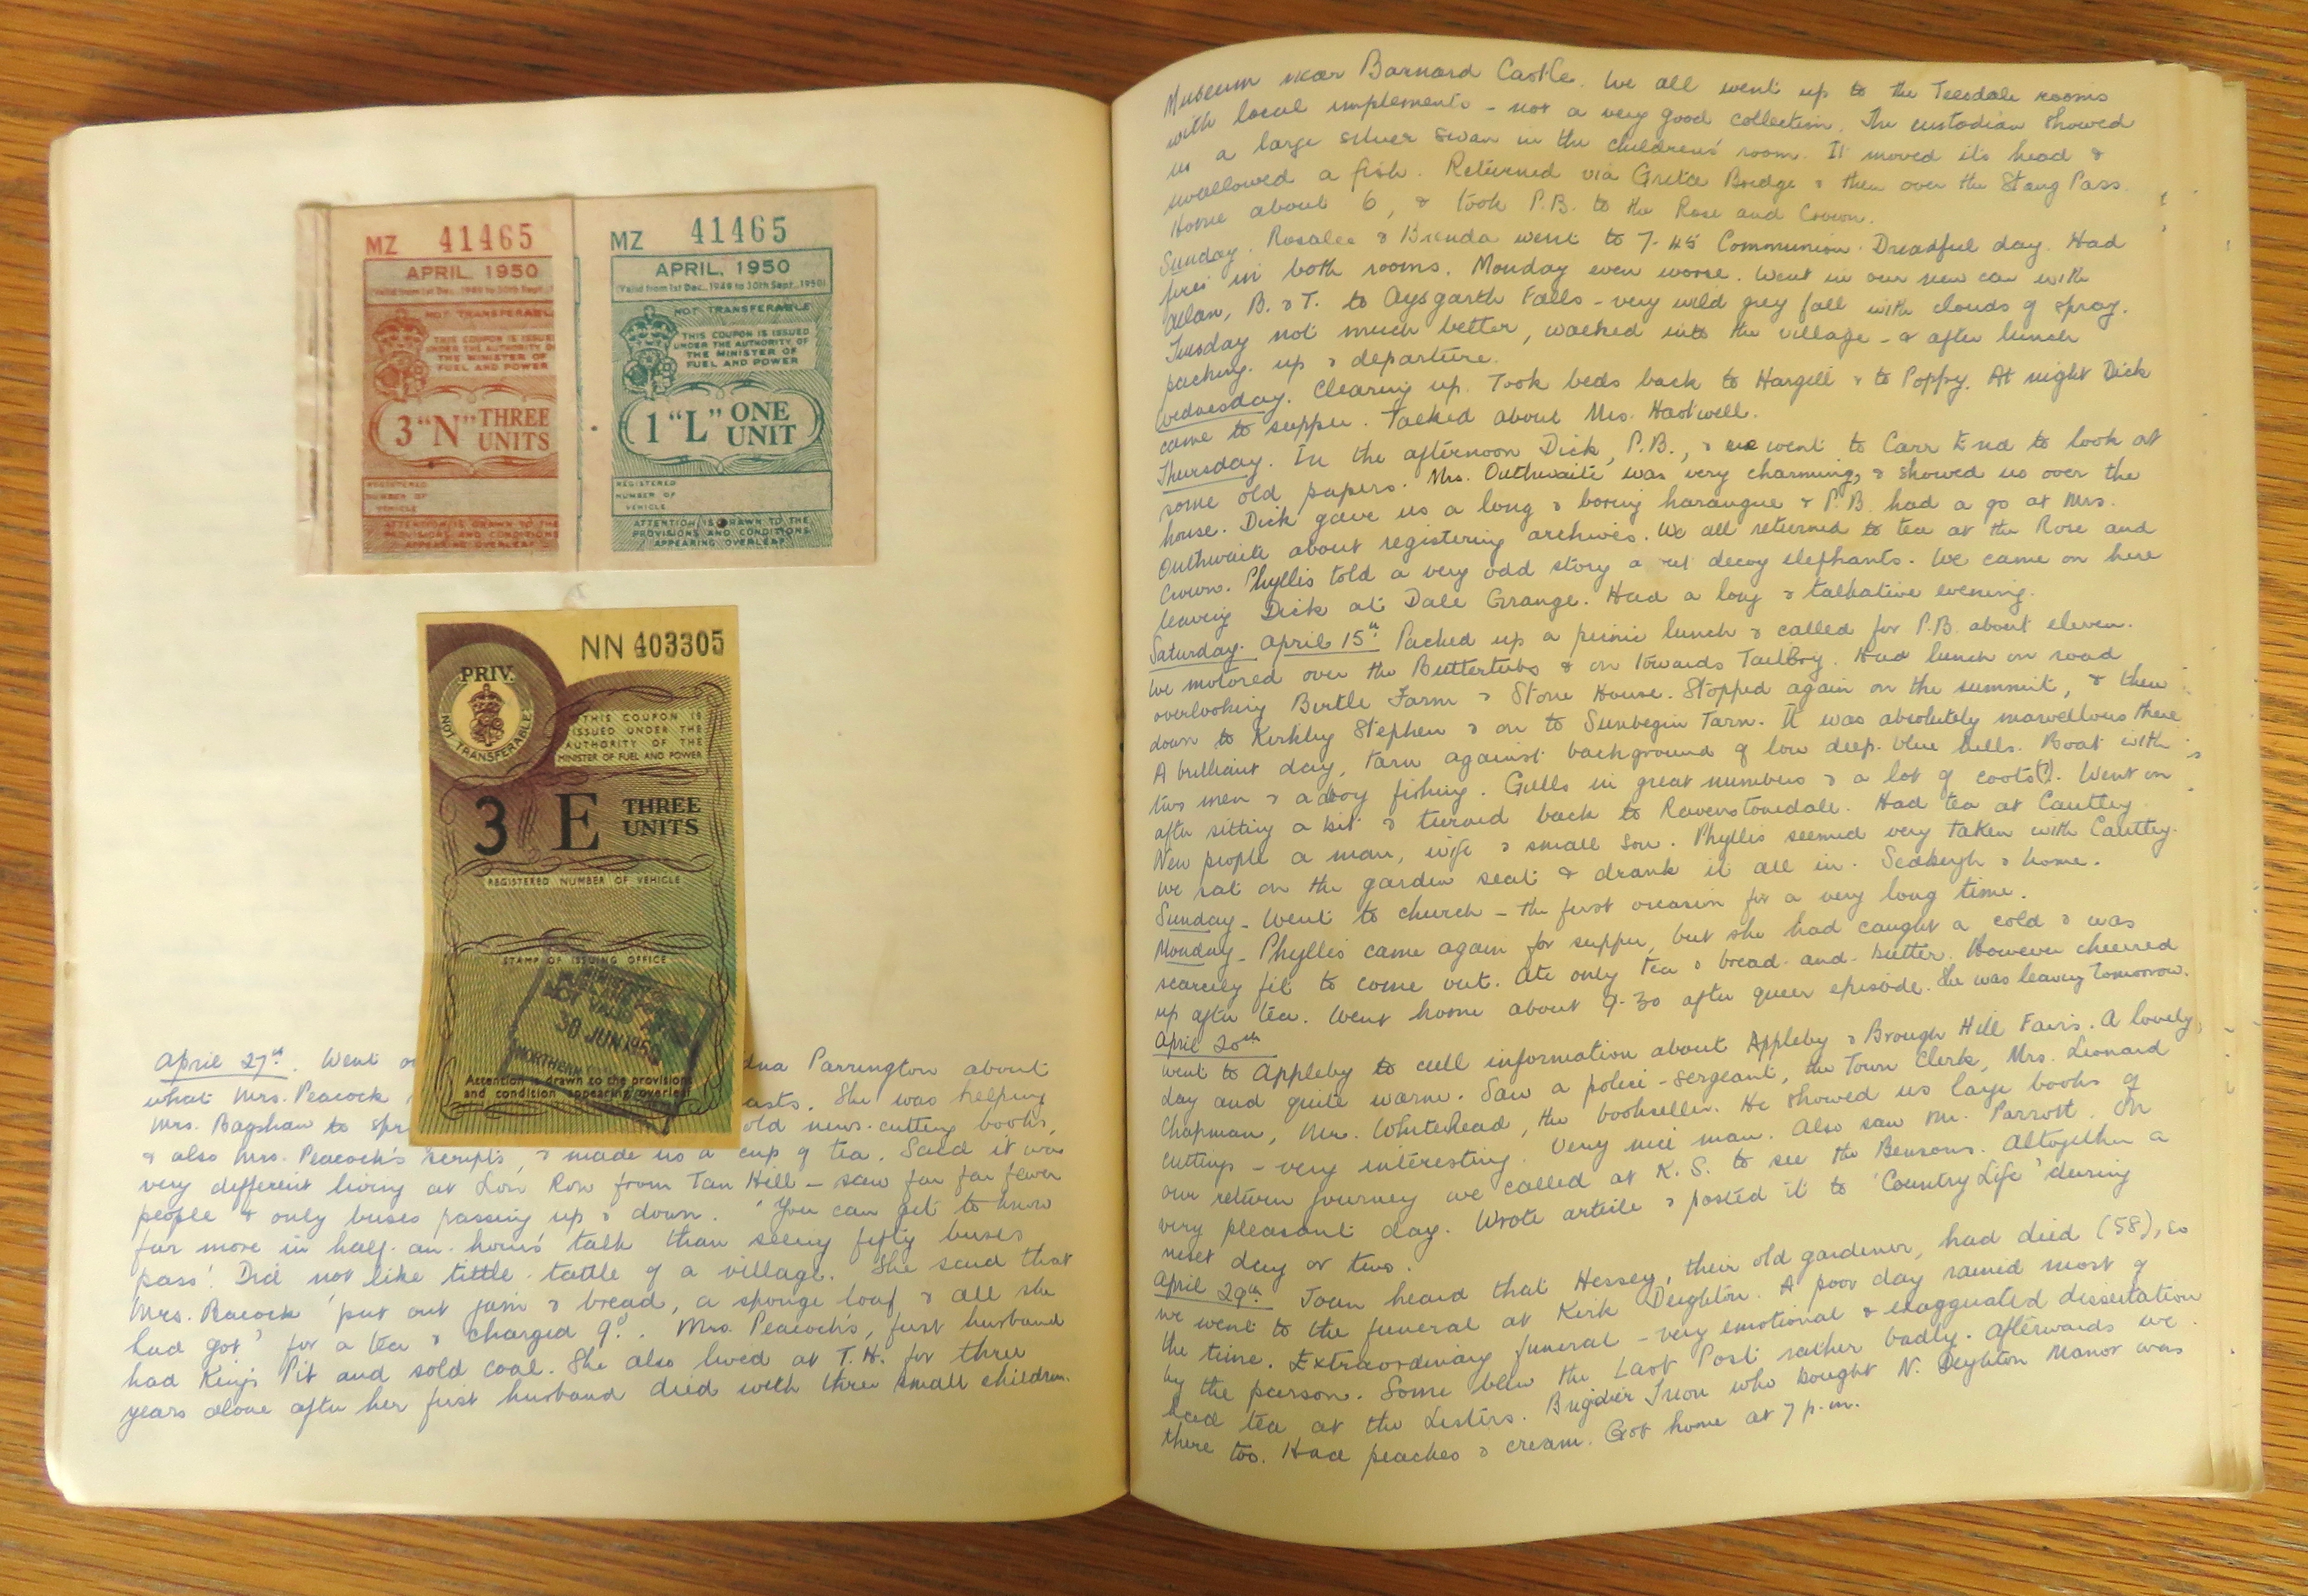 MZ 41465
APRIL, 1950
(Valid from 1st Dec., 1949 to 30th Sept., 1
NOT TRANSFERABLE
THIS COUPON IS ISSUE
UNDER THE AUTHORITY OF
THE MINISTER OF
FUEL AND POWER
3 "N" THREE
UNITS
REGISTERED
NUMBER OF
VEHICLE
ATTENTION IS DRAWN TO THE
PROVISIONS AND CONDITIONS
APPEARING OVERLEAF
MZ 41465
APRIL, 1950
(Valid from 1st Dec., 1949 to 30th Sept., 1950)
NOT TRANSFERABLE
THIS COUPON IS ISSUED
UNDER THE AUTHORITY OF
THE MINISTER OF
FUEL AND POWER
1 "L" ONE
UNIT
REGISTERED
NUMBER OF
VEHICLE
ATTENTION IS DRAWN TO THE
PROVISIONS AND CONDITIONS
APPEARING OVERLEAF
NN 403305
PRIV.
NOT TRANSFERABLE
THIS COUPON IS
ISSUED UNDER THE
AUTHORITY OF THE
MINISTER OF FUEL AND POWER
3 E THREE
UNITS
REGISTERED NUMBER OF VEHICLE
STAMP OF ISSUING OFFICE
NOT VALID
30 JUN 1950
NORTHERN
Attention is drawn to the provisions
and condition appearing overleaf
April 27th. Went o Parrington about
what Mrs. Peacock asts. She was helping
Mrs. Bagshaw to spr old news-cutting books,
& also Mrs. Peacock's scripts, & made us a cup of tea. Said it was
very different living at Low Row from Tan Hill – saw far far fewer
people & only buses passing up & down. 'You can get to know
far more in half-an-hour's talk than seeing fifty buses
pass'. Did not like tittle-tattle of a village. She said that
Mrs. Peacock 'put out jam & bread, a sponge loaf & all she
had got' for a tea & charged 9d. Mrs. Peacock's first husband
had King's Pit and sold coal. She also lived at T.H. for three
years alone after her first husband died with three small children.
Museum near Barnard Castle. We all went up to the Teesdale rooms
with local implements – not a very good collection. The custodian showed
us a large silver swan in the children's room. It moved its head &
swallowed a fish. Returned via Greta Bridge & then over the Stang Pass.
Home about 6, & took P.B. to the Rose and Crown.
Sunday. Rosalee & Brenda went to 7-45 Communion. Dreadful day. Had
fires in both rooms. Monday even worse. Went in our new car with
Allan, B. & T. to Aysgarth Falls – very wild grey fall with clouds of spray.
Tuesday not much better, walked into the village – & after lunch
packing up & departure.
Wednesday. Clearing up. Took beds back to Hargill & to Poppy. At night Dick
came to supper. Talked about Mrs. Hartwell.
Thursday. In the afternoon Dick, P.B., & we went to Carr End to look at
some old papers. Mrs. Outhwaite was very charming, & showed us over the
house. Dick gave us a long & boring harangue & P.B. had a go at Mrs.
Outhwaite about registering archives. We all returned to tea at the Rose and
Crown. Phyllis told a very odd story a ut decoy elephants. We came on here
leaving Dick at Dale Grange. Had a long & talkative evening.
Saturday. April 15th. Packed up a picnic lunch & called for P.B. about eleven.
We motored over the Buttertubs & on towards Tailbrig. Had lunch on road
overlooking Birtle Farm & Stone House. Stopped again on the summit, & then
down to Kirkby Stephen & on to Sunbegin Tarn. It was absolutely marvellous there
A brilliant day, tarn against background of low deep-blue hills. Boat with
two men & a boy fishing. Gulls in great numbers & a lot of coots(?). Went on
after sitting a bit & turned back to Ravenstonedale. Had tea at Cautley.
New people a man, wife & small son. Phyllis seemed very taken with Cautley.
We sat on the garden seat & drank it all in. Sedbergh & home.
Sunday – Went to church – the first occasion for a very long time.
Monday – Phyllis came again for supper, but she had caught a cold & was
scarcely fit to come out. Ate only tea & bread-and-butter. However cheered
up after tea. Went home about 9-30 after queer episode. She was leaving tomorrow.
April 20th
Went to Appleby to cull information about Appleby & Brough Hill Fairs. A lovely
day and quite warm. Saw a police-sergeant, the Town Clerk, Mrs. Leonard
Chapman, Mr. Whitehead, the bookseller. He showed us large books of
cuttings – very interesting. Very nice man. Also saw Mr. Parrott. On
our return journey we called at K.S. to see the Bensons. Altogether a
very pleasant day. Wrote article & posted it to 'Country Life' during
next day or two.
April 29th. Joan heard that Hessey, their old gardener, had died (58), so
we went to the funeral at Kirk Deighton. A poor day rained most of
the time. Extraordinary funeral – very emotional & exaggerated dissertation
by the parson. Some blew the Last Post rather badly. Afterwards we
had tea at the Listers. Brigdier who bought N. Deighton Manor was
there too. Had peaches & cream. Got home at 7 p.m.